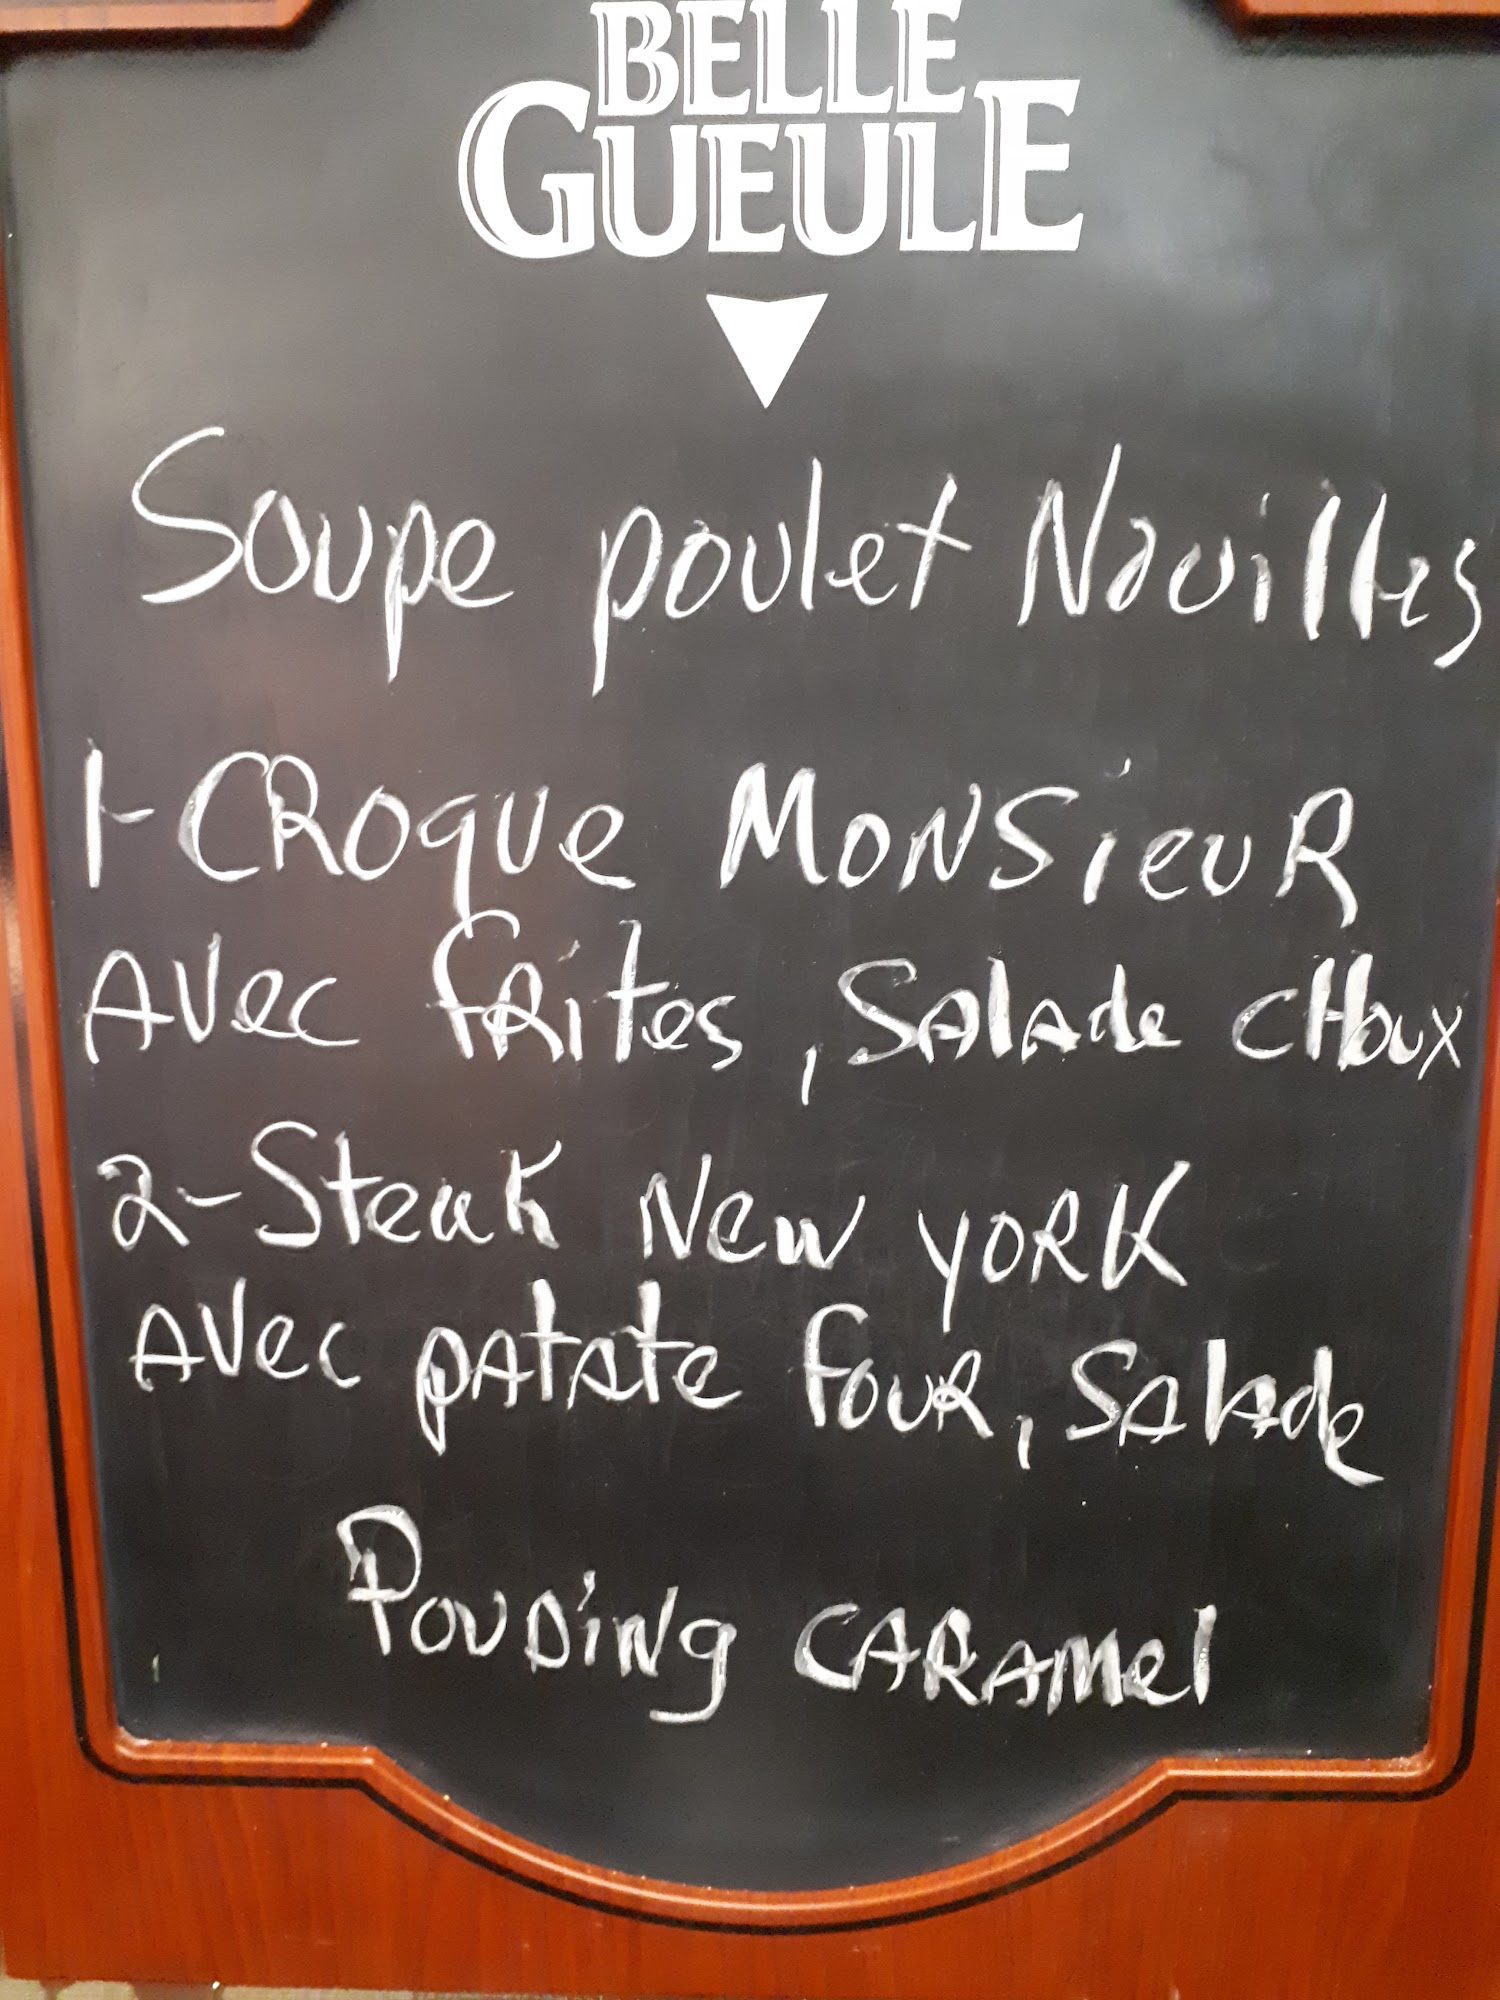 BELLE
GUEULE
Soupe poulet Nouilles
1-CROque MONSieuR
AVec fRites, SALAde cHoux
2-Steak New YORK
AVec pATATe fouR, SALAde
POUDiNg CARAMel